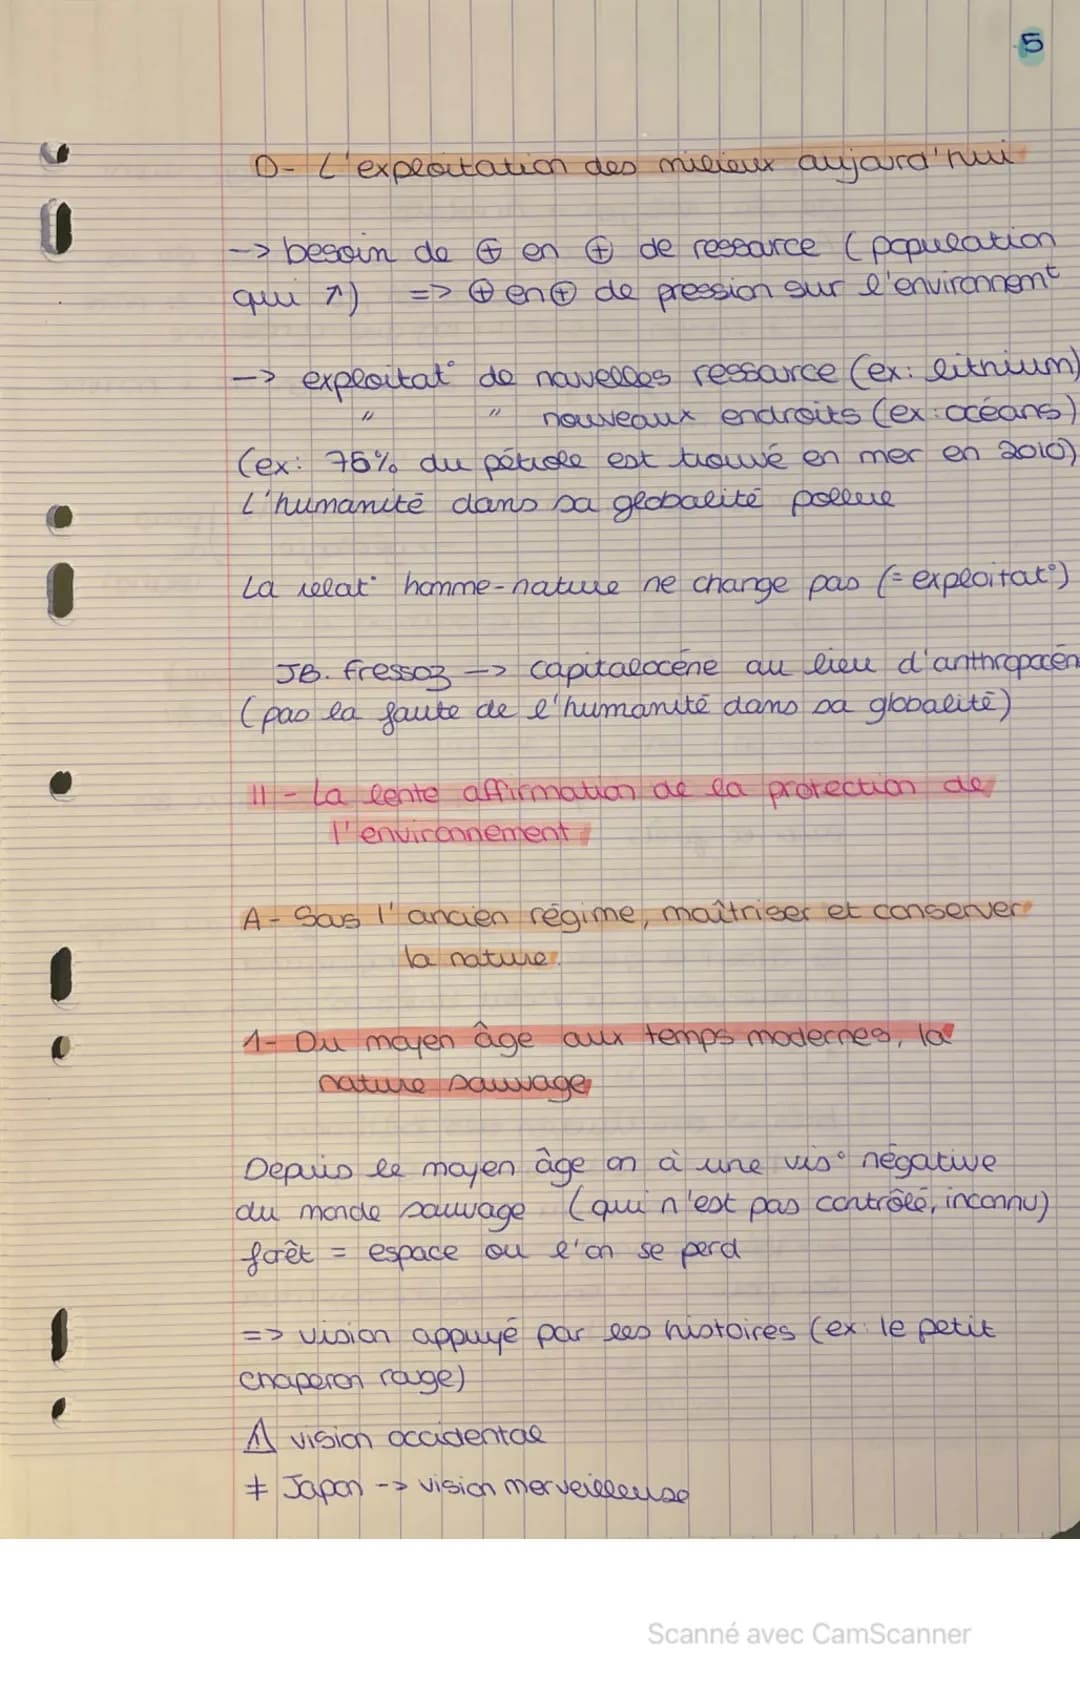 5
D- L'exploitation des milieux aujourd'hui
-> besoin de ⊕ en ⊕ de ressource (population
qui ↗) => ⊕ en ⊕ de pression sur l'environnemt
-> exploitat° de nouvelles ressource (ex: lithium)
" " nouveaux endroits (ex: océans)
(ex: 75% du pétrole est trouvé en mer en 2010)
L'humanité dans sa globalité pollue
La relat° homme-nature ne change pas (= exploitat°)
JB. Fressoz -> capitalocène au lieu d'anthropocèn
(pas la faute de l'humanité dans sa globalité)
II - La lente affirmation de la protection de
l'environnement
A- Sous l'ancien régime, maîtriser et conserver
la nature.
1- Du moyen âge aux temps modernes, la
nature sauvage
Depuis le moyen âge on à une vis° négative
du monde sauvage (qui n'est pas contrôlé, inconnu)
forêt = espace ou l'on se perd
=> vision appuyé par les histoires (ex: le petit
chaperon rouge)
⚠ vision occidentale
≠ Japon -> vision merveilleuse
Scanné avec CamScanner